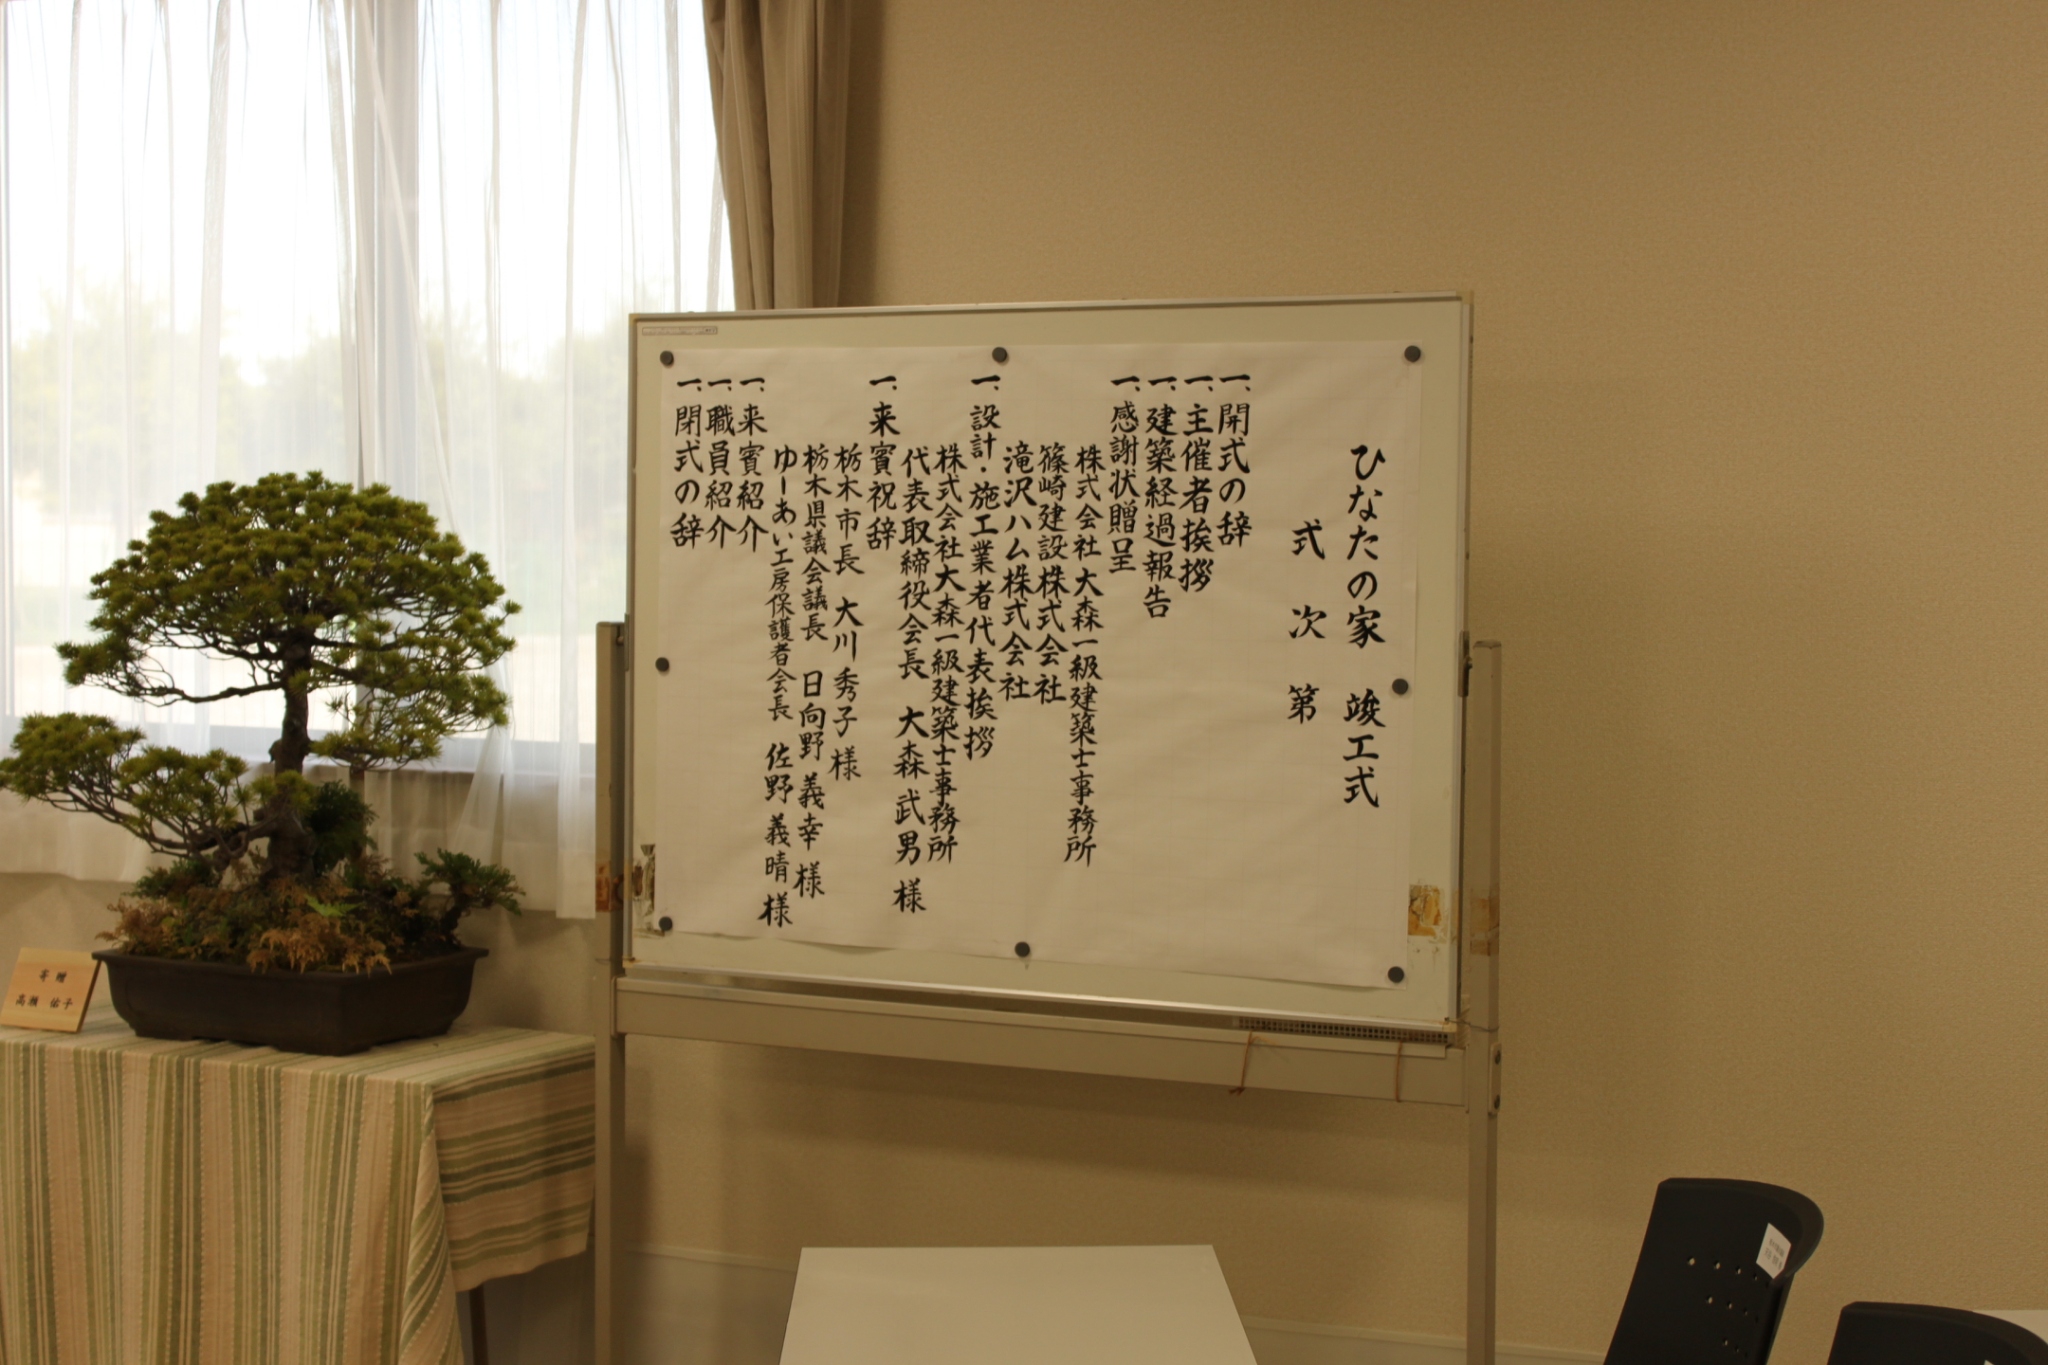 ひなたの家 竣工式
式次第
一、開式の辞
一、主催者挨拶
一、建築経過報告
一、感謝状贈呈
株式会社大森一級建築士事務所
篠崎建設株式会社
滝沢ハム株式会社
一、設計・施工業者代表挨拶
株式会社大森一級建築士事務所
代表取締役会長 大森武男様
一、来賓祝辞
栃木市長 大川秀子様
栃木県議会議長 日向野義幸様
ゆーあい工房保護者会長 佐野義晴様
一、来賓紹介
一、職員紹介
一、閉式の辞
寄贈
高瀬 佑子